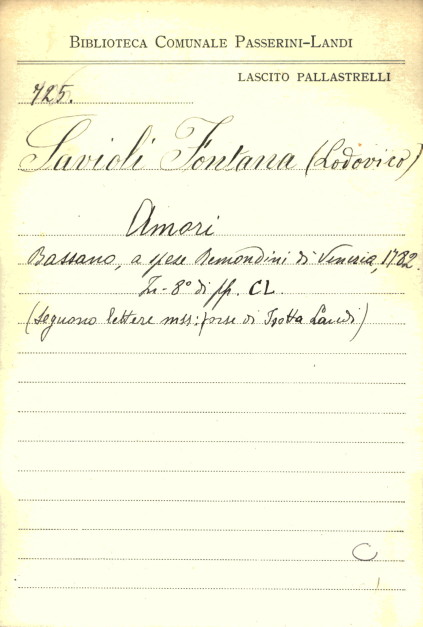 BIBLIOTECA COMUNALE PASSERINI-LANDI
LASCITO PALLASTRELLI
725.
Savioli Fontana (Lodovico)
Amori
Bassano, a spese Remondini di Venezia, 1782.
In-8° di pp. CL.
(Seguono lettere mss: forse di Isotta Landi)
C